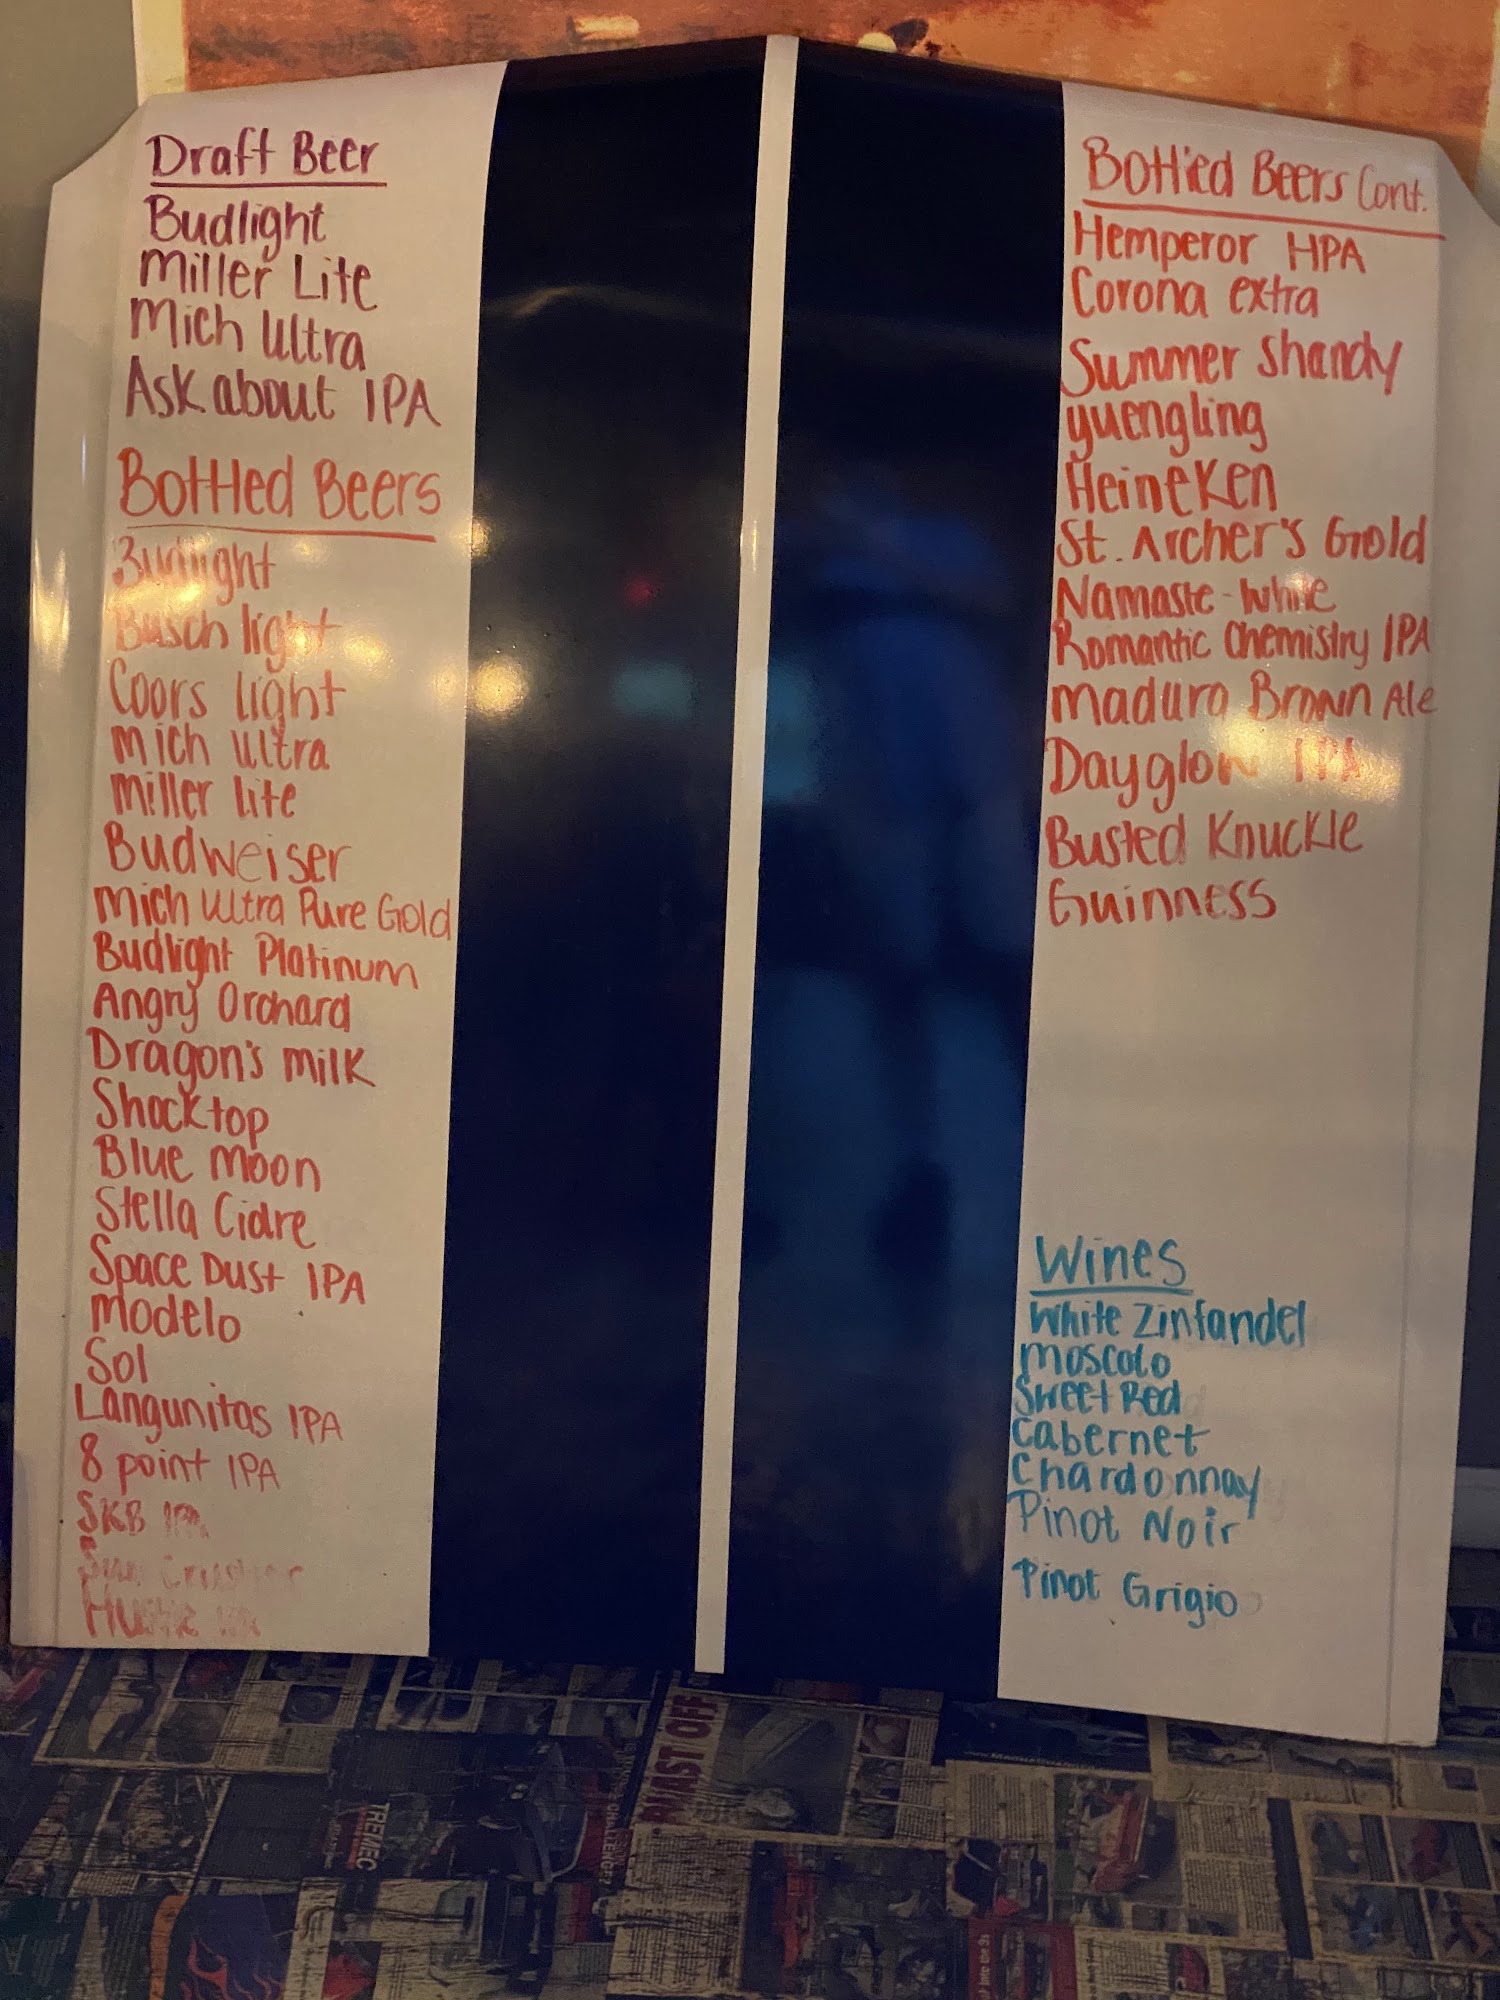 Draft Beer
Budlight
Miller Lite
Mich Ultra
Ask about IPA
Bottled Beers
Budlight
Busch light
Coors light
Mich Ultra
Miller lite
Budweiser
Mich Ultra Pure Gold
Budlight Platinum
Angry Orchard
Dragon's Milk
Shocktop
Blue Moon
Stella Cidre
Space Dust IPA
Modelo
Sol
Langunitas IPA
8 point IPA
SKB IPA
Sun Crusher
Bottled Beers Cont.
Hemperor HPA
Corona extra
Summer Shandy
yuengling
Heineken
St. Archer's Gold
Namaste-White
Romantic Chemistry IPA
Maduro Brown Ale
Dayglow IPA
Busted Knuckle
Guinness
Wines
White Zinfandel
Moscoto
Sweet Red
Cabernet
Chardonnay
Pinot Noir
Pinot Grigio